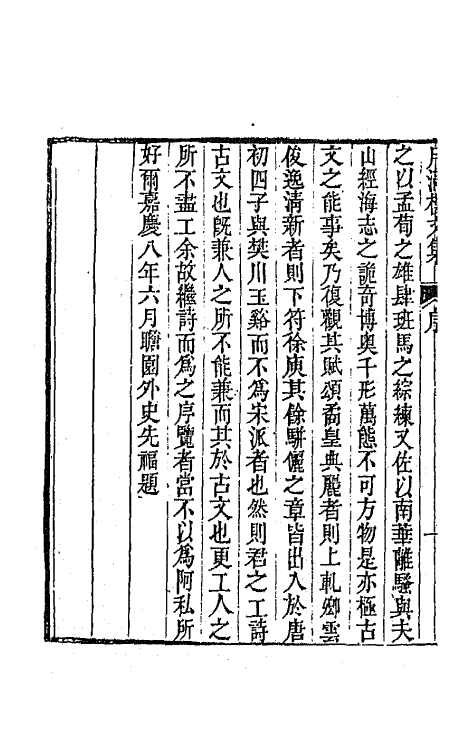 序
之以孟荀之雄肆班馬之綜練又佐以南華離騷與夫
山經海志之詭奇博奧千形萬態不可方物是亦極古
文之能事矣乃復觀其賦頌矞皇典麗者則上軋卿雲
俊逸清新者則下符徐庾其餘駢儷之章皆出入於唐
初四子與樊川玉谿而不為宋派者也然則君之工詩
古文也旣兼人之所不能兼而其於古文也更工人之
所不盡工余故繼詩而為之序覽者當不以為阿私所
好爾嘉慶八年六月瞻園外史先福題